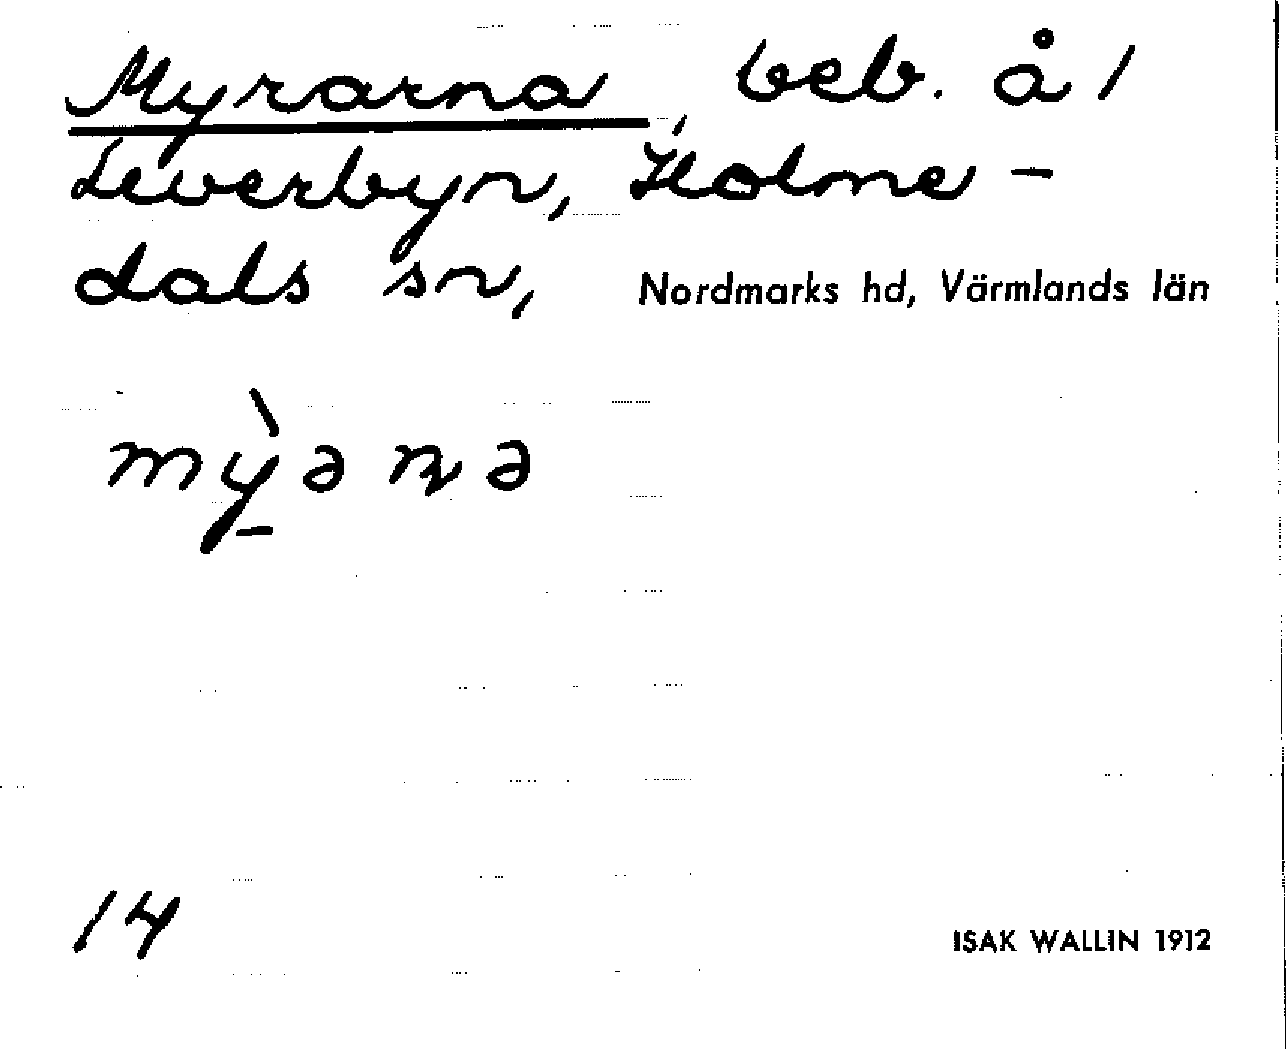 Myrarna, beb. å 1
Leverbyn, Holme-
dals sn, Nordmarks hd, Värmlands län
mỳ̱ənə
14
ISAK WALLIN 1912